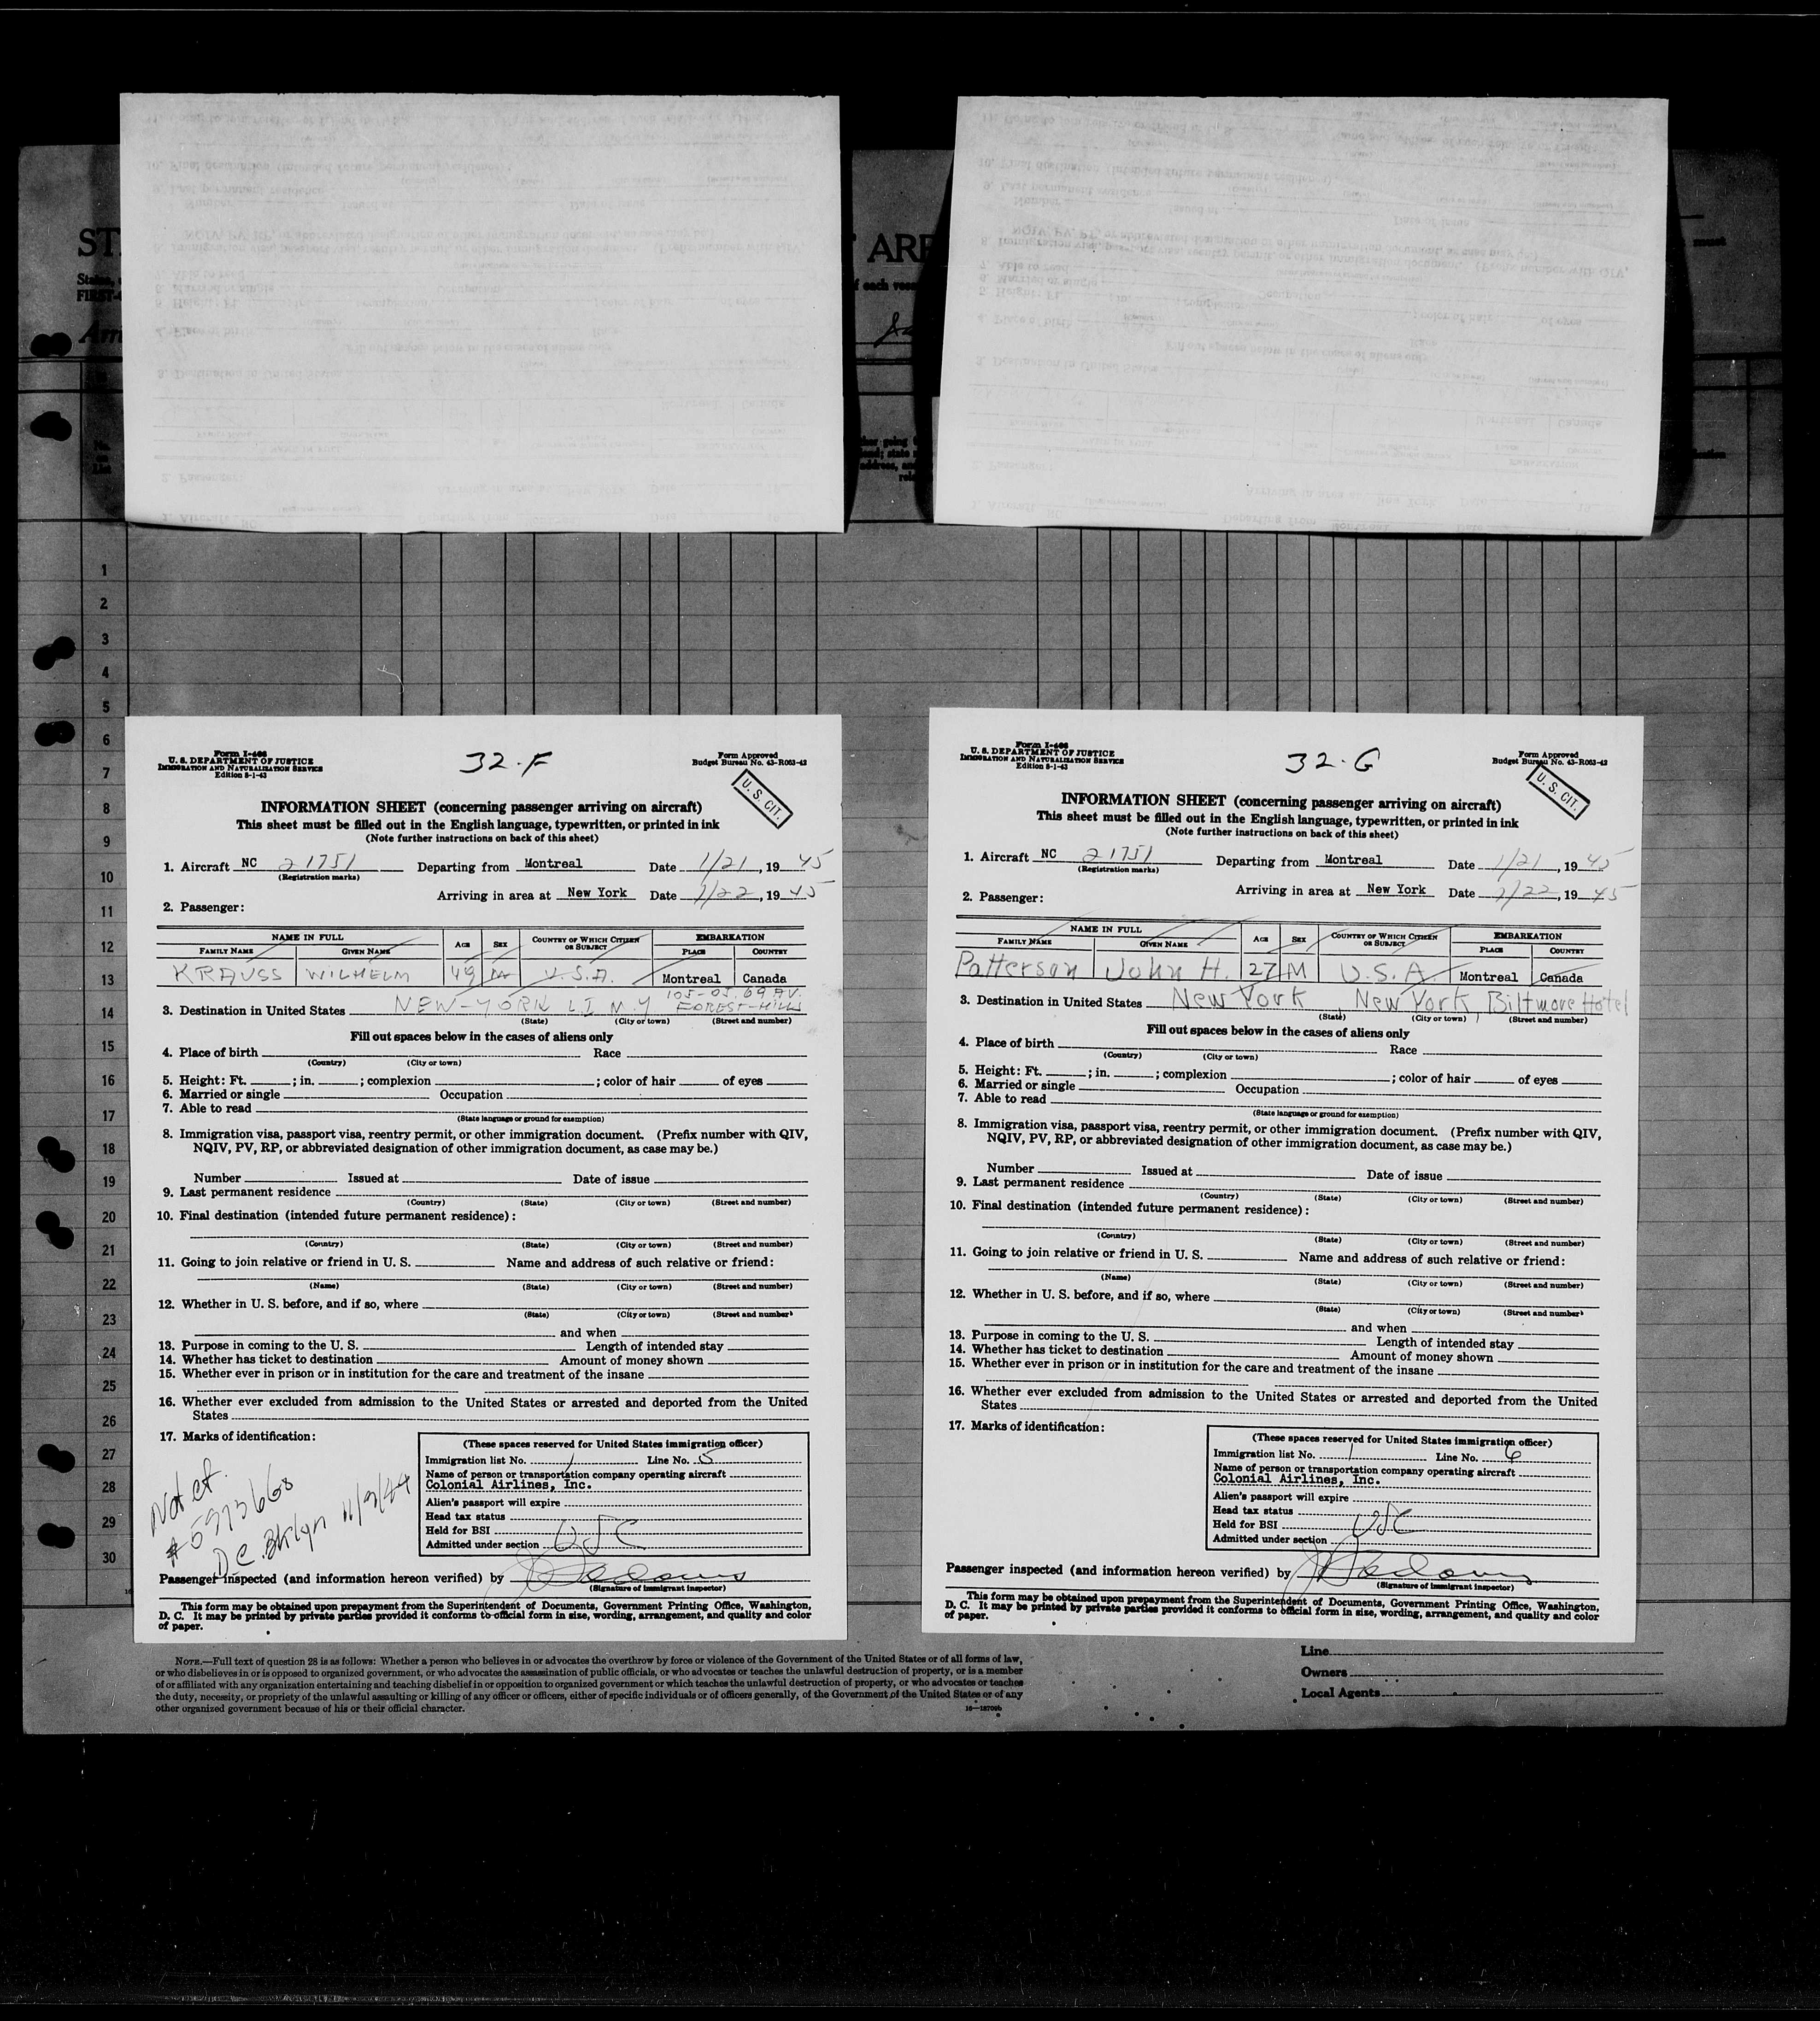 ST
ARR
States,
FIRST-
of each vess
Arri
1
2
3
4
5
6
7
8
9
10
11
12
13
14
15
16
17
18
19
20
21
22
23
24
25
26
27
28
29
30
Form I-466
U. S. DEPARTMENT OF JUSTICE
IMMIGRATION AND NATURALIZATION SERVICE
Edition 8-1-43
32-F
Form Approved
Budget Bureau No. 43-R063-42
U. S. CIT.
INFORMATION SHEET (concerning passenger arriving on aircraft)
This sheet must be filled out in the English language, typewritten, or printed in ink
(Note further instructions on back of this sheet)
1. Aircraft NC 21751 Departing from Montreal Date 1/21, 19 45
(Registration marks)
Arriving in area at New York Date 1/22, 19 45
2. Passenger:
NAME IN FULL AGE SEX COUNTRY OF WHICH CITIZEN OR SUBJECT EMBARKATION
FAMILY NAME GIVEN NAME PLACE COUNTRY
KRAUSS WILHELM 49 M U.S.A. Montreal Canada
105-05. 69 AV.
3. Destination in United States NEW-YORK L I N.Y FOREST-HILLS
(State) (City or town) (Street and number)
Fill out spaces below in the cases of aliens only
4. Place of birth Race
(Country) (City or town)
5. Height: Ft. ; in. ; complexion ; color of hair of eyes
6. Married or single Occupation
7. Able to read
(State language or ground for exemption)
8. Immigration visa, passport visa, reentry permit, or other immigration document. (Prefix number with QIV,
NQIV, PV, RP, or abbreviated designation of other immigration document, as case may be.)
Number Issued at Date of issue
9. Last permanent residence
(Country) (State) (City or town) (Street and number)
10. Final destination (intended future permanent residence):
(Country) (State) (City or town) (Street and number)
11. Going to join relative or friend in U. S. Name and address of such relative or friend:
(Name) (State) (City or town) (Street and number)
12. Whether in U. S. before, and if so, where
(State) (City or town) (Street and number)
and when
13. Purpose in coming to the U. S. Length of intended stay
14. Whether has ticket to destination Amount of money shown
15. Whether ever in prison or in institution for the care and treatment of the insane
16. Whether ever excluded from admission to the United States or arrested and deported from the United
States
17. Marks of identification:
(These spaces reserved for United States immigration officer)
Immigration list No. 1 Line No. 5
Name of person or transportation company operating aircraft
Colonial Airlines, Inc.
Alien's passport will expire
Head tax status
Held for BSI
Admitted under section USC
Nat cf.
# 5973668
DC. Bklyn 11/9/44
Passenger inspected (and information hereon verified) by
(Signature of immigrant inspector)
This form may be obtained upon prepayment from the Superintendent of Documents, Government Printing Office, Washington,
D. C. It may be printed by private parties provided it conforms to official form in size, wording, arrangement, and quality and color
of paper.
Form I-466
U. S. DEPARTMENT OF JUSTICE
IMMIGRATION AND NATURALIZATION SERVICE
Edition 8-1-43
32-G
Form Approved
Budget Bureau No. 43-R063-42
U. S. CIT.
INFORMATION SHEET (concerning passenger arriving on aircraft)
This sheet must be filled out in the English language, typewritten, or printed in ink
(Note further instructions on back of this sheet)
1. Aircraft NC 21751 Departing from Montreal Date 1/21, 19 45
(Registration marks)
Arriving in area at New York Date 1/22, 19 45
2. Passenger:
NAME IN FULL AGE SEX COUNTRY OF WHICH CITIZEN OR SUBJECT EMBARKATION
FAMILY NAME GIVEN NAME PLACE COUNTRY
Patterson John H. 27 M U.S.A. Montreal Canada
3. Destination in United States New York, New York, Biltmore Hotel
(State) (City or town) (Street and number)
Fill out spaces below in the cases of aliens only
4. Place of birth Race
(Country) (City or town)
5. Height: Ft. ; in. ; complexion ; color of hair of eyes
6. Married or single Occupation
7. Able to read
(State language or ground for exemption)
8. Immigration visa, passport visa, reentry permit, or other immigration document. (Prefix number with QIV,
NQIV, PV, RP, or abbreviated designation of other immigration document, as case may be.)
Number Issued at Date of issue
9. Last permanent residence
(Country) (State) (City or town) (Street and number)
10. Final destination (intended future permanent residence):
(Country) (State) (City or town) (Street and number)
11. Going to join relative or friend in U. S. Name and address of such relative or friend:
(Name) (State) (City or town) (Street and number)
12. Whether in U. S. before, and if so, where
(State) (City or town) (Street and number)
and when
13. Purpose in coming to the U. S. Length of intended stay
14. Whether has ticket to destination Amount of money shown
15. Whether ever in prison or in institution for the care and treatment of the insane
16. Whether ever excluded from admission to the United States or arrested and deported from the United
States
17. Marks of identification:
(These spaces reserved for United States immigration officer)
Immigration list No. 1 Line No. 6
Name of person or transportation company operating aircraft
Colonial Airlines, Inc.
Alien's passport will expire
Head tax status
Held for BSI
Admitted under section USC
Passenger inspected (and information hereon verified) by
(Signature of immigrant inspector)
This form may be obtained upon prepayment from the Superintendent of Documents, Government Printing Office, Washington,
D. C. It may be printed by private parties provided it conforms to official form in size, wording, arrangement, and quality and color
of paper.
NOTE.—Full text of question 28 is as follows: Whether a person who believes in or advocates the overthrow by force or violence of the Government of the United States or of all forms of law,
or who disbelieves in or is opposed to organized government, or who advocates the assassination of public officials, or who advocates or teaches the unlawful destruction of property, or is a member
of or affiliated with any organization entertaining and teaching disbelief in or opposition to organized government or which teaches the unlawful destruction of property, or who advocates or teaches
the duty, necessity, or propriety of the unlawful assaulting or killing of any officer or officers, either of specific individuals or of officers generally, of the Government of the United States or of any
other organized government because of his or their official character.
Line
Owners
Local Agents